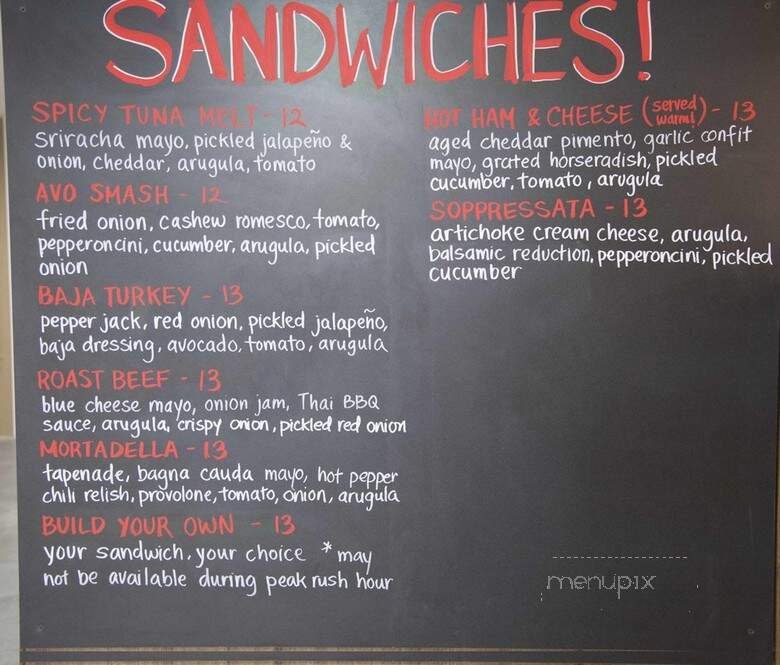 SANDWICHES!
SPICY TUNA MELT - 12
Sriracha mayo, pickled jalapeño &
onion, cheddar, arugula, tomato
AVO SMASH - 12
fried onion, cashew romesco, tomato,
pepperoncini, cucumber, arugula, pickled
onion
BAJA TURKEY - 13
pepper jack, red onion, pickled jalapeño,
baja dressing, avocado, tomato, arugula
ROAST BEEF - 13
blue cheese mayo, onion jam, Thai BBQ
sauce, arugula, crispy onion, pickled red onion
MORTADELLA - 13
tapenade, bagna cauda mayo, hot pepper
chili relish, provolone, tomato, onion, arugula
BUILD YOUR OWN - 13
your sandwich, your choice *may
not be available during peak rush hour
HOT HAM & CHEESE (served warm!) - 13
aged cheddar pimento, garlic confit
mayo, grated horseradish, pickled
cucumber, tomato, arugula
SOPPRESSATA - 13
artichoke cream cheese, arugula,
balsamic reduction, pepperoncini, pickled
cucumber
menupix